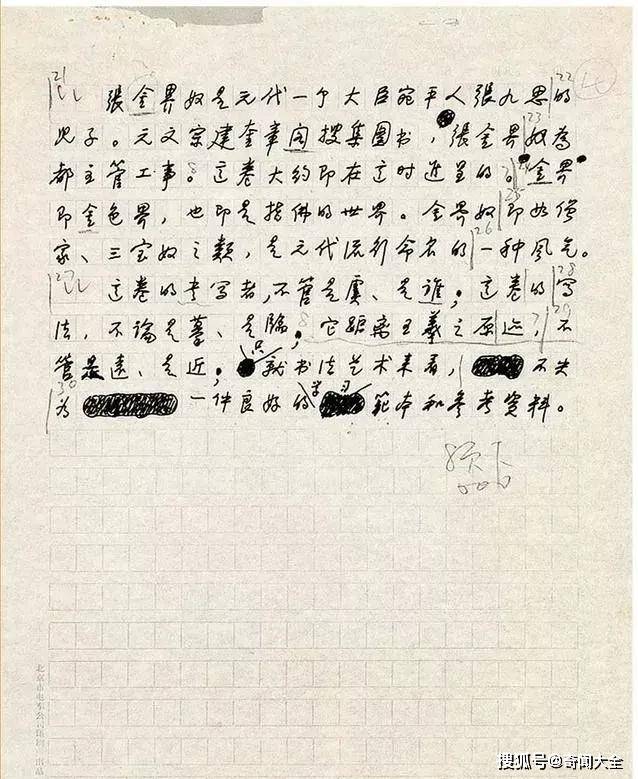 張金界奴是元代一个大臣宛平人張九思的
児子。元文宗建奎章阁搜集图书，張金界奴為
都主管工事。这卷大约即在这时进呈的。金界
即金色界，也即是指佛的世界。金界奴即如僧
家、三宝奴之類，是元代流行命名的一种风气。
这卷的书写者，不管是虞、是谁；这卷的写
法，不論是摹、是臨；它距离王羲之原迹，不
管是遠、是近；只就书法艺术来看，不失
为一件良好的学习范本和参考资料。
21
22
23
25
26
27
28
29
30
北京市电车公司印刷厂出品
搜狐号@奇闻大全